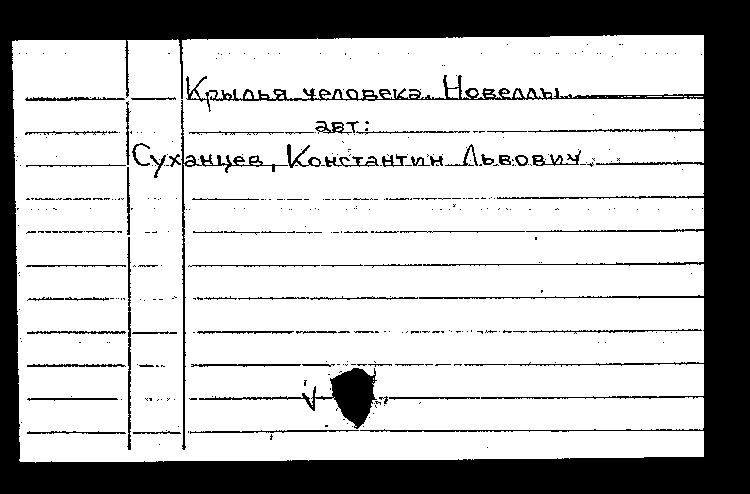 Крылья человека. Новеллы.
авт:
Суханцев, Константин Львович.
V